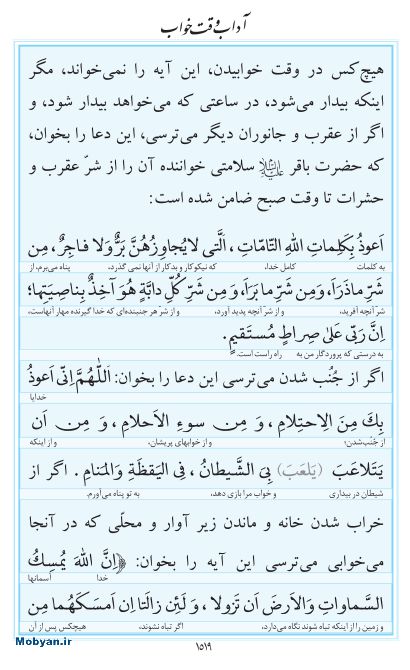 آداب وقت خواب
هیچ‌کس در وقت خوابیدن، این آیه را نمی‌خواند، مگر
اینکه بیدار می‌شود، در ساعتی که می‌خواهد بیدار شود، و
اگر از عقرب و جانوران دیگر می‌ترسی، این دعا را بخوان،
که حضرت باقر علیه‌السلام سلامتی خواننده آن را از شرّ عقرب و
حشرات تا وقت صبح ضامن شده است:
اَعوذُ بِكَلِماتِ اللهِ التّامّاتِ، الَّتى لايُجاوِزُهُنَّ بَرٌّ وَلا فاجِرٌ، مِن
پناه می‌برم، از به کلمات کامل خدا، که نیکوکار و بدکار از آنها نمی گذرد،
شَرِّ ماذَرَاَ، وَمِن شَرِّ ما بَرَاَ، وَ مِن شَرِّ كُلِّ دابَّةٍ هُوَ آخِذٌ بِناصِيَتِها؛
شر آنچه آفرید، و از شر آنچه پدید آورد، و از شر هر جنبنده‌ای که خدا گیرنده مهار آنهاست،
اِنَّ رَبّى عَلىٰ صِراطٍ مُستَقيمٍ.
به درستی که پروردگار من به راه راست است.
اگر از جُنُب شدن می‌ترسی این دعا را بخوان: اَللّٰهُمَّ اِنّى اَعوذُ
خدایا
بِكَ مِنَ الاِحتِلامِ، وَ مِن سوءِ الاَحلامِ، وَ مِن اَن
از جُنُب‌شدن؛ و از خوابهای پریشان، و از اینکه
يَتَلاعَبَ (يَلعَبَ) بِىَ الشَّيطانُ، فِى اليَقظَةِ وَالمَنامِ. اگر از
شیطان در بیداری و خواب مرا بازی دهد، به تو پناه می‌آورم.
خراب شدن خانه و ماندن زیر آوار و محلّی که در آنجا
می‌خوابی می‌ترسی این آیه را بخوان: ﴿اِنَّ اللهَ يُمسِكُ
خدا آسمانها
السَّماواتِ وَالاَرضَ اَن تَزولا، وَ لَئِن زالَتا اِن اَمسَكَهُما مِن
و زمین را از اینکه تباه شوند نگاه می‌دارد، اگر تباه شوند، هیچکس پس از آن
Mobyan.ir
۱۵۱۹